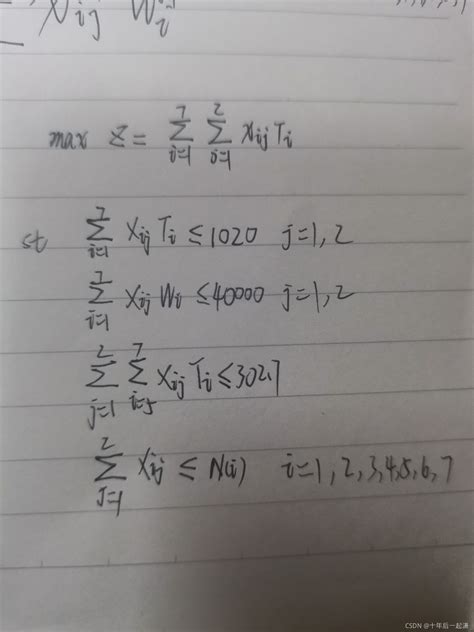 Xij Wi
max Z = ∑_{i=1}^{7} ∑_{i=1}^{2} Xij Ti
st ∑_{i=1}^{7} Xij Ti ≤ 1020 j=1,2
∑_{i=1}^{7} Xij Wi ≤ 40000 j=1,2
∑_{j=1}^{2} ∑_{i=5}^{7} Xij Ti ≤ 302.7
∑_{J=1}^{2} Xij ≤ N(i) i=1,2,3,4,5,6,7
CSDN @十年后一起满